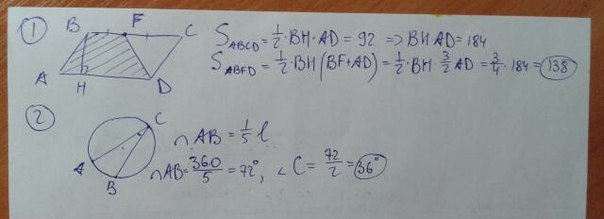 1
B F C
A H D
S_ABCD = 1/2 · BH · AD = 92 => BH AD = 184
S_ABFD = 1/2 · BH (BF + AD) = 1/2 · BH · 3/2 AD = 3/4 · 184 = 138
2
C
A
B
∩ AB = 1/5 l
∩ AB = 360/5 = 72°, ∠ C = 72/2 = 36°